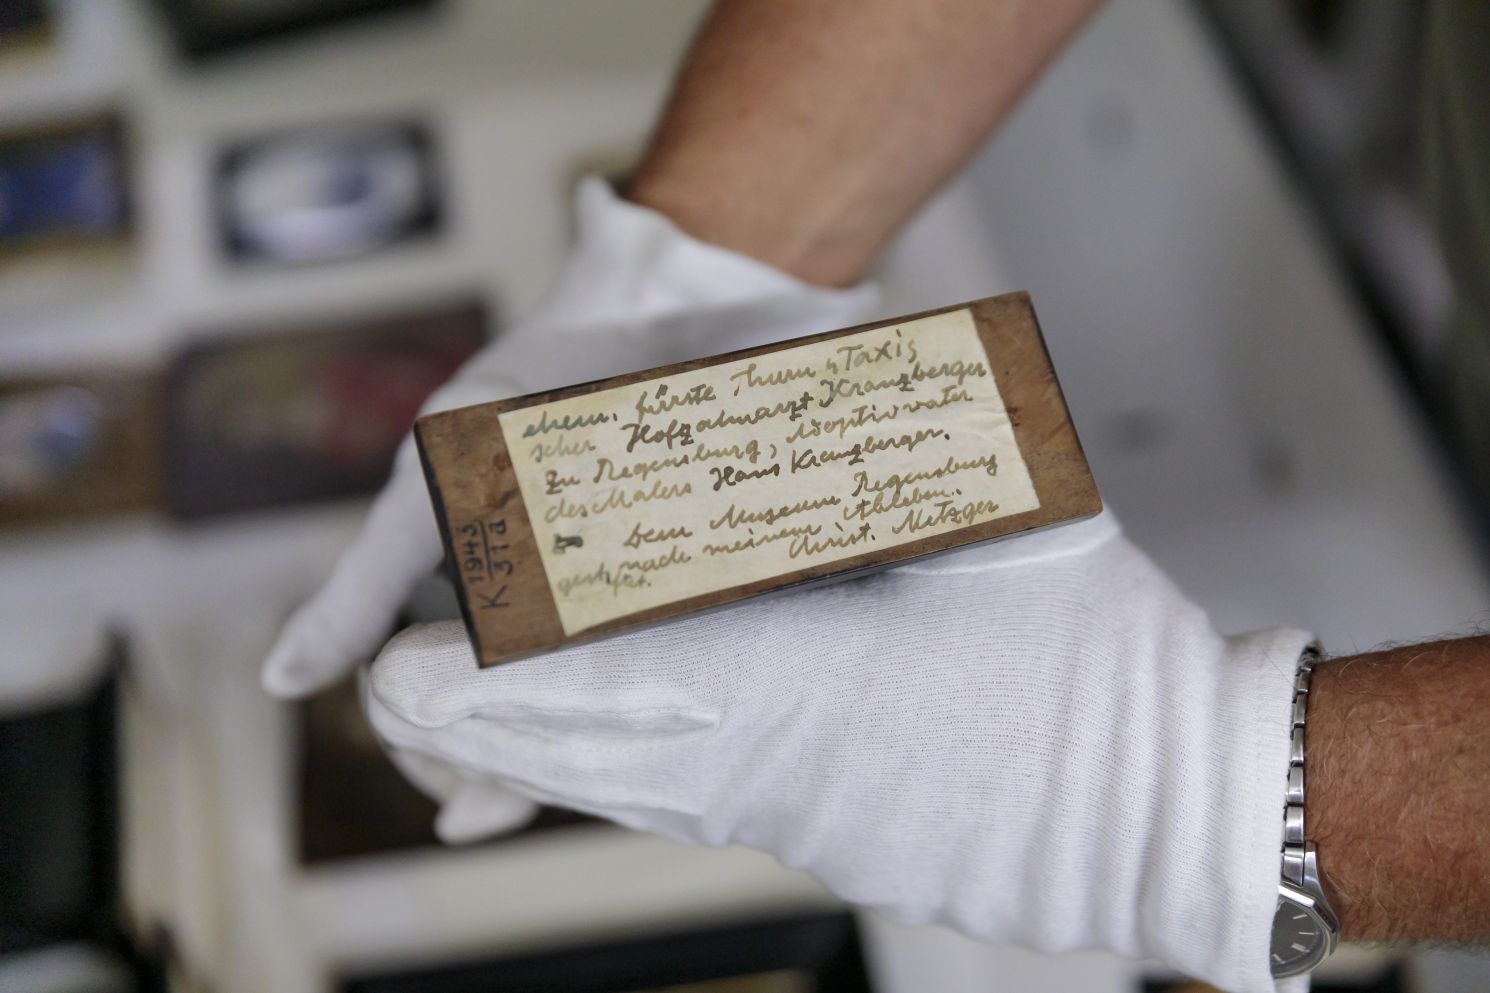 ehem. fürste Thurn u Taxis
scher Hofzahnarzt Kranzberger
zu Regensburg, Adoptivvater
des Malers Hans Kranzberger.
Dem Museum Regensburg
nach meinem Ableben.
Christ. Metzger
K 1943
31a